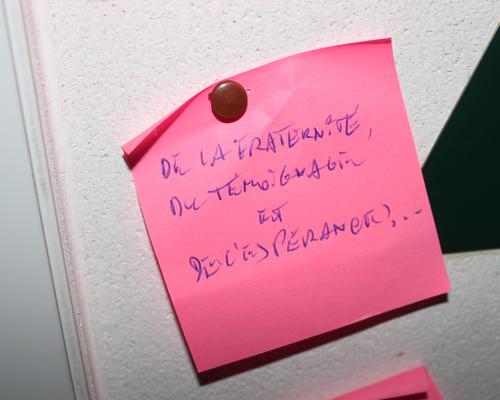 DE LA FRATERNITÉ,
DU TEMOIGNAGE
ET
DE L'ESPÉRANCE,...